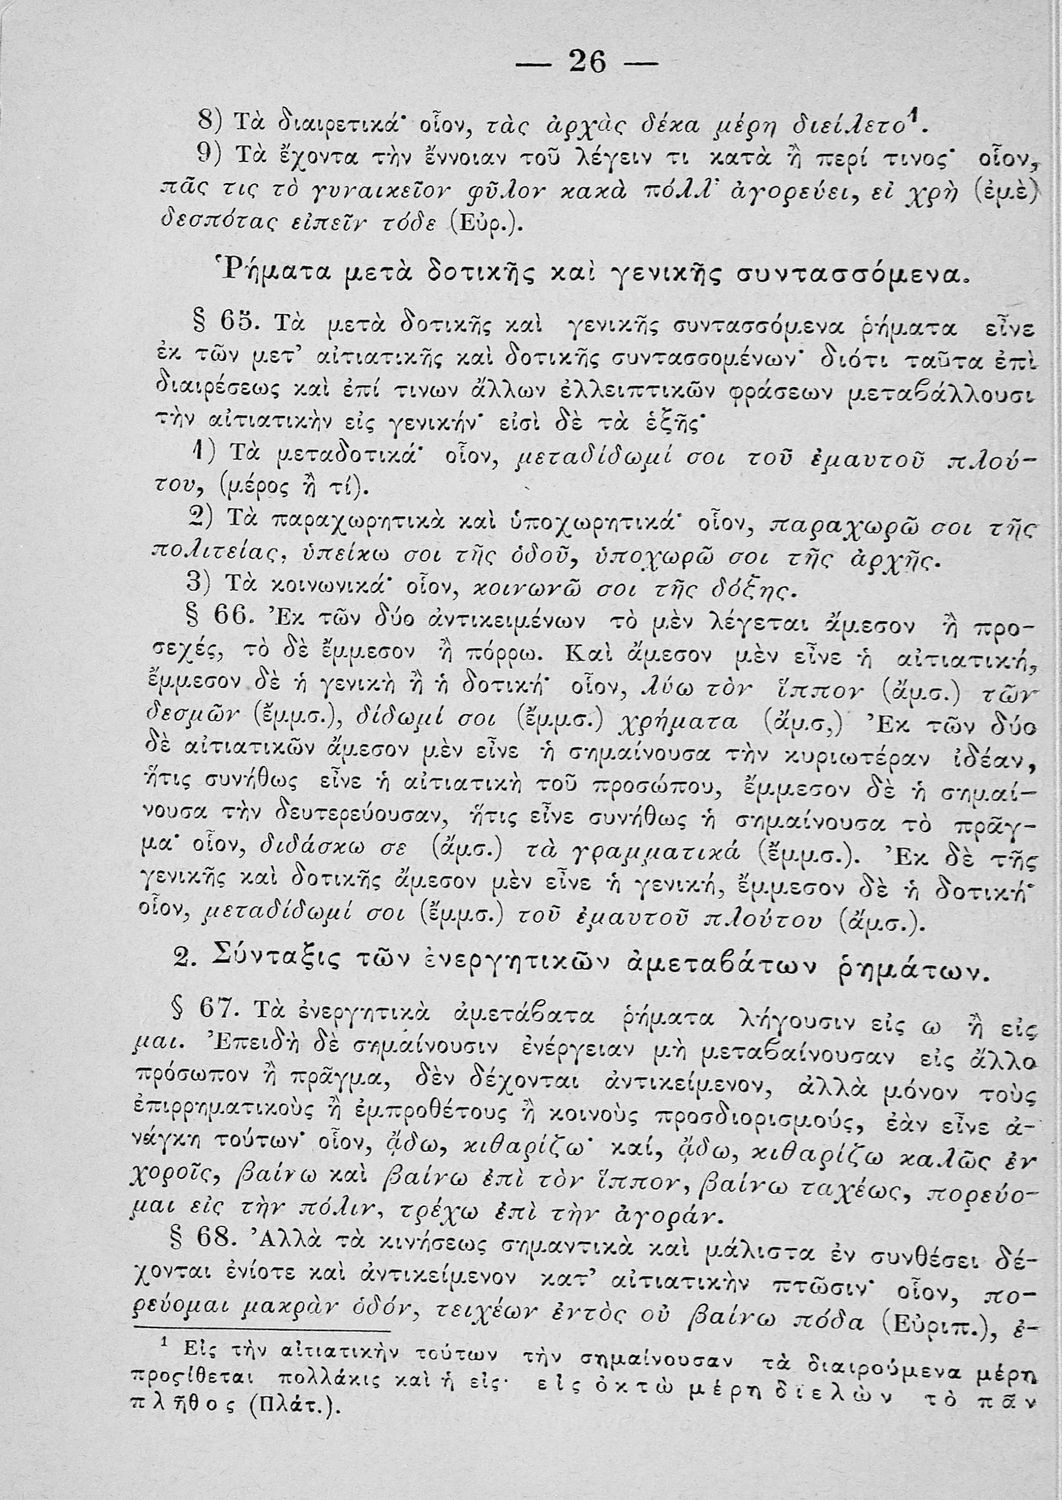 — 26 —
8) Τὰ διαιρετικά· οἷον, τὰς ἀρχὰς δέκα μέρη διείλετο¹.
9) Τὰ ἔχοντα τὴν ἔννοιαν τοῦ λέγειν τι κατὰ ἢ περί τινος· οἷον,
πᾶς τις τὸ γυναικεῖον φῦλον κακὰ πόλλ' ἀγορεύει, εἰ χρὴ (ἐμὲ)
δεσπότας εἰπεῖν τόδε (Εὐρ.).
Ῥήματα μετὰ δοτικῆς καὶ γενικῆς συντασσόμενα.
§ 65. Τὰ μετὰ δοτικῆς καὶ γενικῆς συντασσόμενα ῥήματα εἶνε
ἐκ τῶν μετ' αἰτιατικῆς καὶ δοτικῆς συντασσομένων· διότι ταῦτα ἐπὶ
διαιρέσεως καὶ ἐπί τινων ἄλλων ἐλλειπτικῶν φράσεων μεταβάλλουσι
τὴν αἰτιατικὴν εἰς γενικήν· εἰσὶ δὲ τὰ ἑξῆς·
1) Τὰ μεταδοτικά· οἷον, μεταδίδωμί σοι τοῦ ἐμαυτοῦ πλού-
του, (μέρος ἢ τί).
2) Τὰ παραχωρητικὰ καὶ ὑποχωρητικά· οἷον, παραχωρῶ σοι τῆς
πολιτείας, ὑπείκω σοι τῆς ὁδοῦ, ὑποχωρῶ σοι τῆς ἀρχῆς.
3) Τὰ κοινωνικά· οἷον, κοινωνῶ σοι τῆς δόξης.
§ 66. Ἐκ τῶν δύο ἀντικειμένων τὸ μὲν λέγεται ἄμεσον ἢ προ-
σεχές, τὸ δὲ ἔμμεσον ἢ πόρρω. Καὶ ἄμεσον μὲν εἶνε ἡ αἰτιατική,
ἔμμεσον δὲ ἡ γενικὴ ἢ ἡ δοτική· οἷον, λύω τὸν ἵππον (ἄμσ.) τῶν
δεσμῶν (ἔμμσ.), δίδωμί σοι (ἔμμσ.) χρήματα (ἄμσ,) Ἐκ τῶν δύο
δὲ αἰτιατικῶν ἄμεσον μὲν εἶνε ἡ σημαίνουσα τὴν κυριωτέραν ἰδέαν,
ἥτις συνήθως εἶνε ἡ αἰτιατικὴ τοῦ προσώπου, ἔμμεσον δὲ ἡ σημαί-
νουσα τὴν δευτερεύουσαν, ἥτις εἶνε συνήθως ἡ σημαίνουσα τὸ πρᾶγ-
μα· οἷον, διδάσκω σε (ἄμσ.) τὰ γραμματικά (ἔμμσ.). Ἐκ δὲ τῆς
γενικῆς καὶ δοτικῆς ἄμεσον μὲν εἶνε ἡ γενική, ἔμμεσον δὲ ἡ δοτική·
οἷον, μεταδίδωμί σοι (ἔμμσ.) τοῦ ἐμαυτοῦ πλούτου (ἄμσ.).
2. Σύνταξις τῶν ἐνεργητικῶν ἀμεταβάτων ῥημάτων.
§ 67. Τὰ ἐνεργητικὰ ἀμετάβατα ῥήματα λήγουσιν εἰς ω ἢ εἰς
μαι. Ἐπειδὴ δὲ σημαίνουσιν ἐνέργειαν μὴ μεταβαίνουσαν εἰς ἄλλο
πρόσωπον ἢ πρᾶγμα, δὲν δέχονται ἀντικείμενον, ἀλλὰ μόνον τοὺς
ἐπιρρηματικοὺς ἢ ἐμπροθέτους ἢ κοινοὺς προσδιορισμούς, ἐὰν εἶνε ἀ-
νάγκη τούτων· οἷον, ᾄδω, κιθαρίζω· καί, ᾄδω, κιθαρίζω καλῶς ἐν
χοροῖς, βαίνω καὶ βαίνω ἐπὶ τὸν ἵππον, βαίνω ταχέως, πορεύο-
μαι εἰς τὴν πόλιν, τρέχω ἐπὶ τὴν ἀγοράν.
§ 68. Ἀλλὰ τὰ κινήσεως σημαντικὰ καὶ μάλιστα ἐν συνθέσει δέ-
χονται ἐνίοτε καὶ ἀντικείμενον κατ' αἰτιατικὴν πτῶσιν· οἷον, πο-
ρεύομαι μακρὰν ὁδόν, τειχέων ἐντὸς οὐ βαίνω πόδα (Εὐριπ.), ἐ-
¹ Εἰς τὴν αἰτιατικὴν τούτων τὴν σημαίνουσαν τὰ διαιρούμενα μέρη
προςίθεται πολλάκις καὶ ἡ εἰς· εἰς ὀκτὼ μέρη διελὼν τὸ πᾶν
πλῆθος (Πλάτ.).